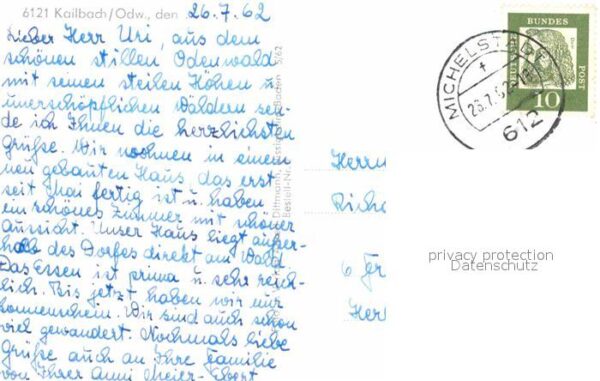 6121 Kailbach/Odw., den 26.7.62
Lieber Herr Uri, aus dem
schönen stillen Odenwald
mit seinen steilen Höhen u.
unerschöpflichen Wäldern sen-
de ich Ihnen die herzlichsten
Grüße. Wir wohnen in einem
neu gebauten Haus, das erst
seit Mai fertig ist u. haben
ein schönes Zimmer mit schöner
Aussicht. Unser Haus liegt außer-
halb des Dorfes direkt am Wald.
Das Essen ist prima u. sehr reich-
lich. Bis jetzt haben wir nur
Sonnenschein. Wir sind auch schon
viel gewandert. Nochmals liebe
Grüße auch an Ihre Familie
von Ihrer Anni Meier-Ebert
5/62
Bestell-Nr.
DEUTSCHE BUNDESPOST
10
MICHELSTADT
612
Herrn
6 Fr
privacy protection
Datenschutz